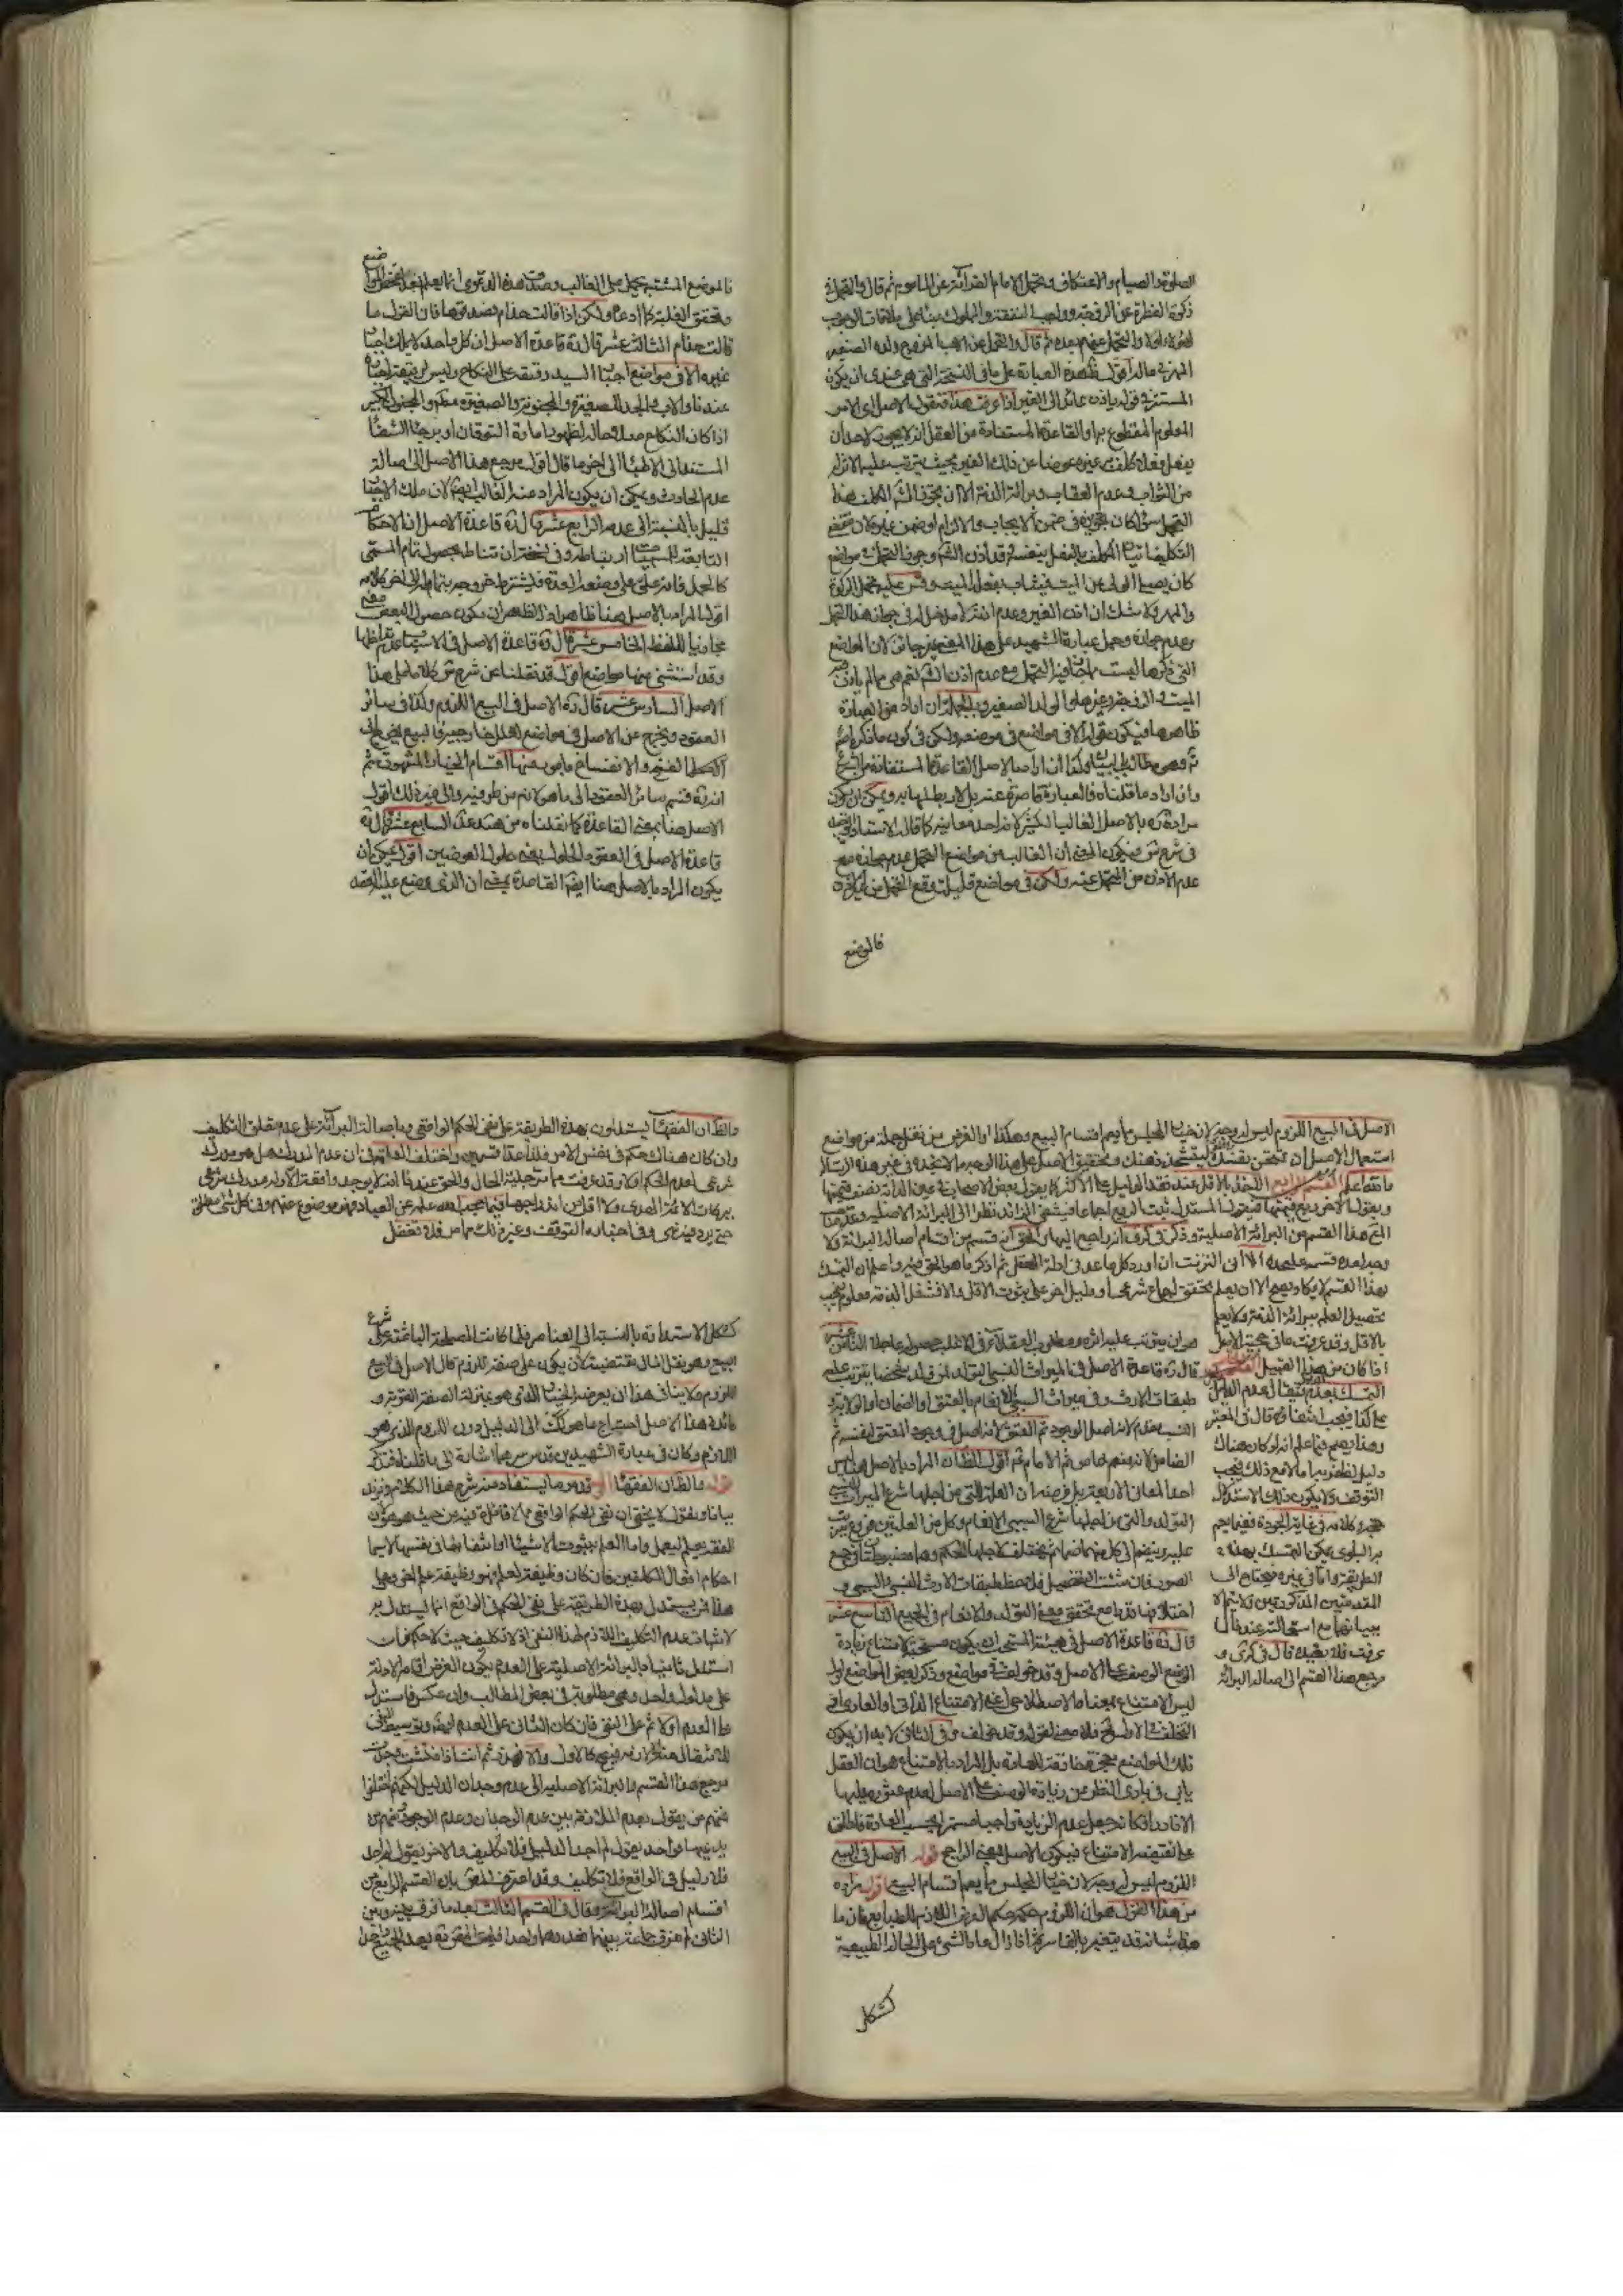 الصلوة والصيام والاعتكاف وتحمل الامام القرائة عن الماموم ثم قال والتحمل في
زكوة الفطرة عن الزوجة وواجب النفقة والمملوك مبنى على ملاقات الوجوب
لهؤلاء اولا والتحمل عنهم بعده ثم قال والتحمل عن الاب المزوج ولده الصغير
المهر في ماله اقول هذه العبارة على ما في النسخة التي هي عندى ان يكون
المستتر في قوله ياذن عائد الى الغير اذا عرفت هذا فنقول الاصل اى الامر
المعلوم المقطوع به او القاعدة المستفادة من العقل انه لا يجوز لاحد ان
يفعل فعلا كلف به غيره عوضا عن ذلك الغير بحيث يترتب عليه الاثر
من الثواب وعدم العقاب وبرائة الذمة الا ان يجوز الشم للمكلف هذا
التحمل سواء كان تجويزه في ضمن الايجاب والالزام او ضمن غيره لان مقتضى
التكليف اتيان المكلف بالفعل بنفسه وقد اذن الشم وجوز التحمل في مواضع
كان يصلى الولى عن الميت فيثاب بفعله الميت وقس عليه تحمل الزكوة
والمهر ولا شك ان اذن الغير وعدم اذنه لا مدخل له في جواز هذا التحمل
وعدم جوازه وحمل عبارة الشهيد على هذا المعنى غير جائز لان المواضع
التى ذكرها ليست مما جاز فيها التحمل مع عدم اذن الشم نعم هي مما لم ياذن
الميت والزوجة وغيرهما والولد الصغير وبالجملة ان اراد من العبارة
ظاهرها فيكون قوله الا في مواضع في موضعه ولكن في كون ما ذكره اصلا
ثم وهى مطالبة بالبيان وكذا ان اراد بالاصل القاعدة المستفادة من الشرع
وان اراد ما قلناه فالعبارة قاصرة عنه بل لا ربط لها به ويمكن ان يكون
مراده ره بالاصل الغالب الكثير لانه احد معانيه كما قال الاستاد
في شرح ش فيكون المعنى ان الغالب من مواضع التحمل عدم جوازه مع
عدم الاذن من المتحمل عنه ولكن في مواضع قليلة وقع التحمل من غير اذنه
فالموضع
فالموضع المشتبه يحمل على الغالب وصدق هذه الدعوى انما يعلم بعد تفحص المواضع
وتحقق الغلبة كما ادعاه ولكن اذا قالت حذام فصدقوها فان القول ما
قالت حذام الثالث عشر قال ره قاعدة الاصل ان كل واحد لا يملك اجبار
غيره الا في مواضع اجبار السيد رقيقه على النكاح وليس لرقيقه اجباره
عندنا والاب والجد للصغيرة والمجنونة والصغير والمجنون الكبير
اذا كان النكاح صلاحا له لظهور امارة التوقان او برجاء الشفاء
المستند الى الاطباء الى اخر ما قال اقول مرجع هذا الاصل الى اصالة
عدم الحادث ويمكن ان يكون المراد منه الغالب ايضا لان ملك الاجبار
قليل بالنسبة الى عدمه الرابع عشر قال ره قاعدة الاصل ان الاحكام
التابعة لمسميات ارتباطه وفى نسخة ان تناط بحصول تمام المسمى
كالحمل فانه علق على وضعه العدة فيشترط خروجه بتمامه الى اخر كلامه
اقول المراد بالاصل هنا ظاهر اذ الظاهر ان يكون حصول البعض معنى
مجازيا للفظ الخامس عشر قال ره قاعدة الاصل في الاسباب عدم تداخلها
وقد استثنى منها مواضع اقول قد نقلنا عن شرح ش كلاما على هذا
الاصل السادس عشر قال ره الاصل في البيع اللزوم وكذا في سائر
العقود ويخرج عن الاصل في مواضع لعلل خارجية فالبيع يخرج الى
الفسخ والانفساخ بامور منها اقسام الخيار المشهورة ثم
انه ره قسم سائر العقود الى ما هو لازم من طرفيه والى غير ذلك اقول
الاصل هنا بمعنى القاعدة كما نقلناه من هذه السابع عشر قال ره
قاعدة الاصل في العقود الحلول يعنى حلول العوضين اقول يمكن ان
يكون المراد بالاصل هنا ايضا القاعدة بمعنى ان الذى وضع عليه العقد
الاصل في البيع اللزوم ليس له وجه لان خيار المجلس مما يعم اقسام البيع وهكذا والغرض من نقل جملة من مواضع
استعمال الاصل ان تمتحن نفسك وليتشحذ ذهنك وتحقيق الاصل على هذا الوجه مما لا تجده في غير هذه الرسالة
والله اعلم القسم الرابع الاخذ بالاقل عند فقد الدليل على الاكثر كما يقول بعض الاصحاب في عين الدابة نصف قيمتها
ويقول الاخر ربع قيمتها فيقول المستدل ثبت الربع اجماعا فينتفى الزائد نظرا الى البرائة الاصلية
المحقق هذا القسم من البرائة الاصلية وذكر في كرى انه راجع اليها والحق انه قسم من اقسام اصالة البرائة ولا
وجه لعده قسما عليحدة الا انى التزمت ان اورد كل ما عد في ادلة العقل ثم اذكر ما هو الحق فيه واعلم ان التمسك
بهذا القسم لا يكاد يصح الا ان يعلم تحقق اجماع شرعى او دليل اخر على ثبوت الاقل والا فشغل الذمة معلوم فيجب
تحصيل العلم ببرائة الذمة ولا يعلم
بالاقل وقد عرفت ما في حجية الاصل
اذا كان من هذا القبيل القسم الخامس
التمسك بعدم الدليل فيقال عدم الدليل
على كذا فيجب انتفاؤه قال في المعتبر
وهذا يصح فيما علم انه لو كان هناك
دليل لظفر به اما لا مع ذلك فيجب
التوقف ولا يكون ذلك الاستدلال
حجة وكلامه في غاية الجودة ففيما يعم
به البلوى يمكن التمسك بهذه
الطريقة واما في غيره فيحتاج الى
المقدمتين المذكورتين ولا يتم الا
ببيانهما مع استحالته عندنا لما
عرفت فلا نعيدك قال في كرى و
مرجع هذا القسم الى اصالة البرائة
هو ان يترتب عليه اثره ومطلوب العقلاء في الاغلب حصوله عاجلا الثامن عشر
قال ره قاعدة الاصل في الميراث النسبى التولد ممن ولد شخصا يترتب عليه
طبقات الارث وفى ميراث السببى الانعام بالعتق او الضمان او الولاية
النسب مقدم لانه اصل الوجود ثم العتق لانه اصل في وجود المعتق لنفسه ثم
الضامن لانه منعم خاص ثم الامام ثم اقول الظان المراد بالاصل هنا ليس
احد المعان الاربعة بل غرضه ان العلة التى من اجلها شرع الميراث النسبى
التولد والتى من اجلها شرع السببى الانعام وكل من العلتين فروع يترتب
عليه وينضم الى كل منهما ضمائم تختلف لاجلها الحكم وهما مضبوطتان في جميع
الصور فان شئت التفصيل فلاحظ طبقات الارث النسبى والسببى و
اختلافهما قدرا مع تحقق معنى التولد والانعام في الجميع التاسع عشر
قال ره قاعدة الاصل في هيئة المستحب ان يكون مستحبة لامتناع زيادة
الوصف على الاصل وقد خولف في مواضع وذكر بعض المواضع اقول
ليس الامتناع بمعناه الاصطلاحى اعنى الامتناع الذاتى والعادى اذ
التخلف في الاول مح فلا معنى لقوله وقد خولف وفى الثانى لابد ان يكون
تلك المواضع معجزة خارقة للعادة بل المراد بالامتناع هو ان العقل
يابى في بادى النظر من زيادة الوصف على الاصل لعدم عثوره عليها
الا نادرا فكانه جعل عدم الزيادة واجبا مستمرا بحسب العادة فاطلق
على نقيضه الامتناع فيكون الاصل بمعنى الراجح قوله الاصل في البيع
اللزوم ليس له وجه لان خيار المجلس مما يعم اقسام البيع اقول مراده
من هذا القول هو ان اللزوم حكمه حكم العرض اللازم للطبايع فان ما
هذا شانه قد يتغير بالقاسر ثم اذا زال عاد الشئ على الحالة الطبيعية
كشكل
والظ ان الفقهاء يستدلون بهذه الطريقة على نفى الحكم الواقعى وباصالة البرائة على عدم تعلق التكليف
وان كان هناك حكم في نفس الامر فلذا عدا قسمين واختلف العامة في ان عدم المدرك هل هو مدرك
شرعى لعدم الحكم او لا وقد عرفت مما مر جلية الحال والحق عندنا انه لا يوجد واقعة الا وله مدرك شرعى
ببركات الائمة الهدى فلا اقل من اندراجها فيما حجب الله علمه عن العباد فهو موضوع عنهم وفى كل شئ مطلق
حتى يرد فيه نهى وفى اخبار التوقف وغير ذلك مما مر فلا تغفل
كشكل الاستدارة بالنسبة الى العناصر فلما كانت المصلحة الباعثة على شرع
البيع وهو نقل المال مقتضية لان يكون على صفة اللزوم قال الاصل في البيع
اللزوم ولا ينافى هذا ان يعرضه الخيار الذى هو بمنزلة الصفة القسرية و
فائدة هذا الاصل احتياج ما هو كك الى الدليل دون اللزوم الذى هو
اللازم وكان في عبارة الشهيدين قدس سرهما اشارة الى ما قلناه فتذكر
قوله والظ ان الفقهاء اقول قد مر ما يستفاد منه شرح هذا الكلام ونزيد
بيانا ونقول لا يخفى ان نفى الحكم الواقعى مما لا فائدة فيه من حيث هو هو لان
الفقه يعلم ليعمل واما العلم بثبوت الاشياء او انتفائها في نفسها لا سيما
احكام افعال المكلفين فان كان وظيفة لعلم فهو وظيفة علم اخر فعلى
هذا من يستدل بهذه الطريقة على نفى الحكم في الواقع انما يستدل به
لاثبات عدم التكليف اللازم لهذا النفى اذ لا تكليف حيث لا حكم فان
استدل ثانيا بالبرائة الاصلية على العدم يكون الغرض اقامة الادلة
على مدلول واحد وهى مطلوبة في بعض المطالب وان عكس فاستدل
على العدم اولا ثم على النفى فان كان الثانى على العدم ايضا وتوسيط النفى
للانتقال منه اليه فهو كالاول والا فهو لغو ثم انت اذا فتشت وجدت
مرجع هذا القسم والبرائة الاصلية الى عدم وجدان الدليل لكنهم اختلفوا
فمنهم من يقول بعدم الملازمة بين عدم الوجدان وعدم الوجود ومنهم من
يدعيها فواحد يقول لم اجد الدليل فلا تكليف والاخر يقول لم اجد
فلا دليل في الواقع فلا تكليف وقد اعترف المص بان القسم الرابع من
اقسام اصالة البرائة وقال في القسم الثالث بعد ما فرق بينه وبين
الثانى لم يفرق جماعة بينهما فعدوهما واحدا